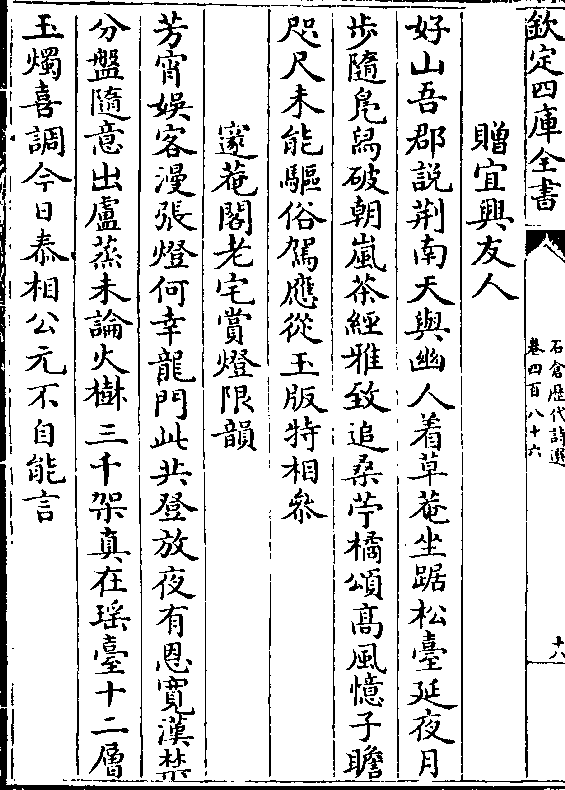 欽定四庫全書
石倉歴代詩選
卷四百八十六
十八
贈宜興友人
好山吾郡説荆南天與幽人着草菴坐踞松臺延夜月
歩隨鳬舄破朝嵐茶經雅致追桑苧橘頌髙風憶子瞻
咫尺未能驅俗駕應從玉版特相叅
邃菴閣老宅賞燈限韻
芳宵娯客漫張燈何幸龍門此共登放夜有恩寛漢禁
分盤隨意出盧蒸未論火樹三千架真在瑶臺十二層
玉燭喜調今日泰相公元不自能言